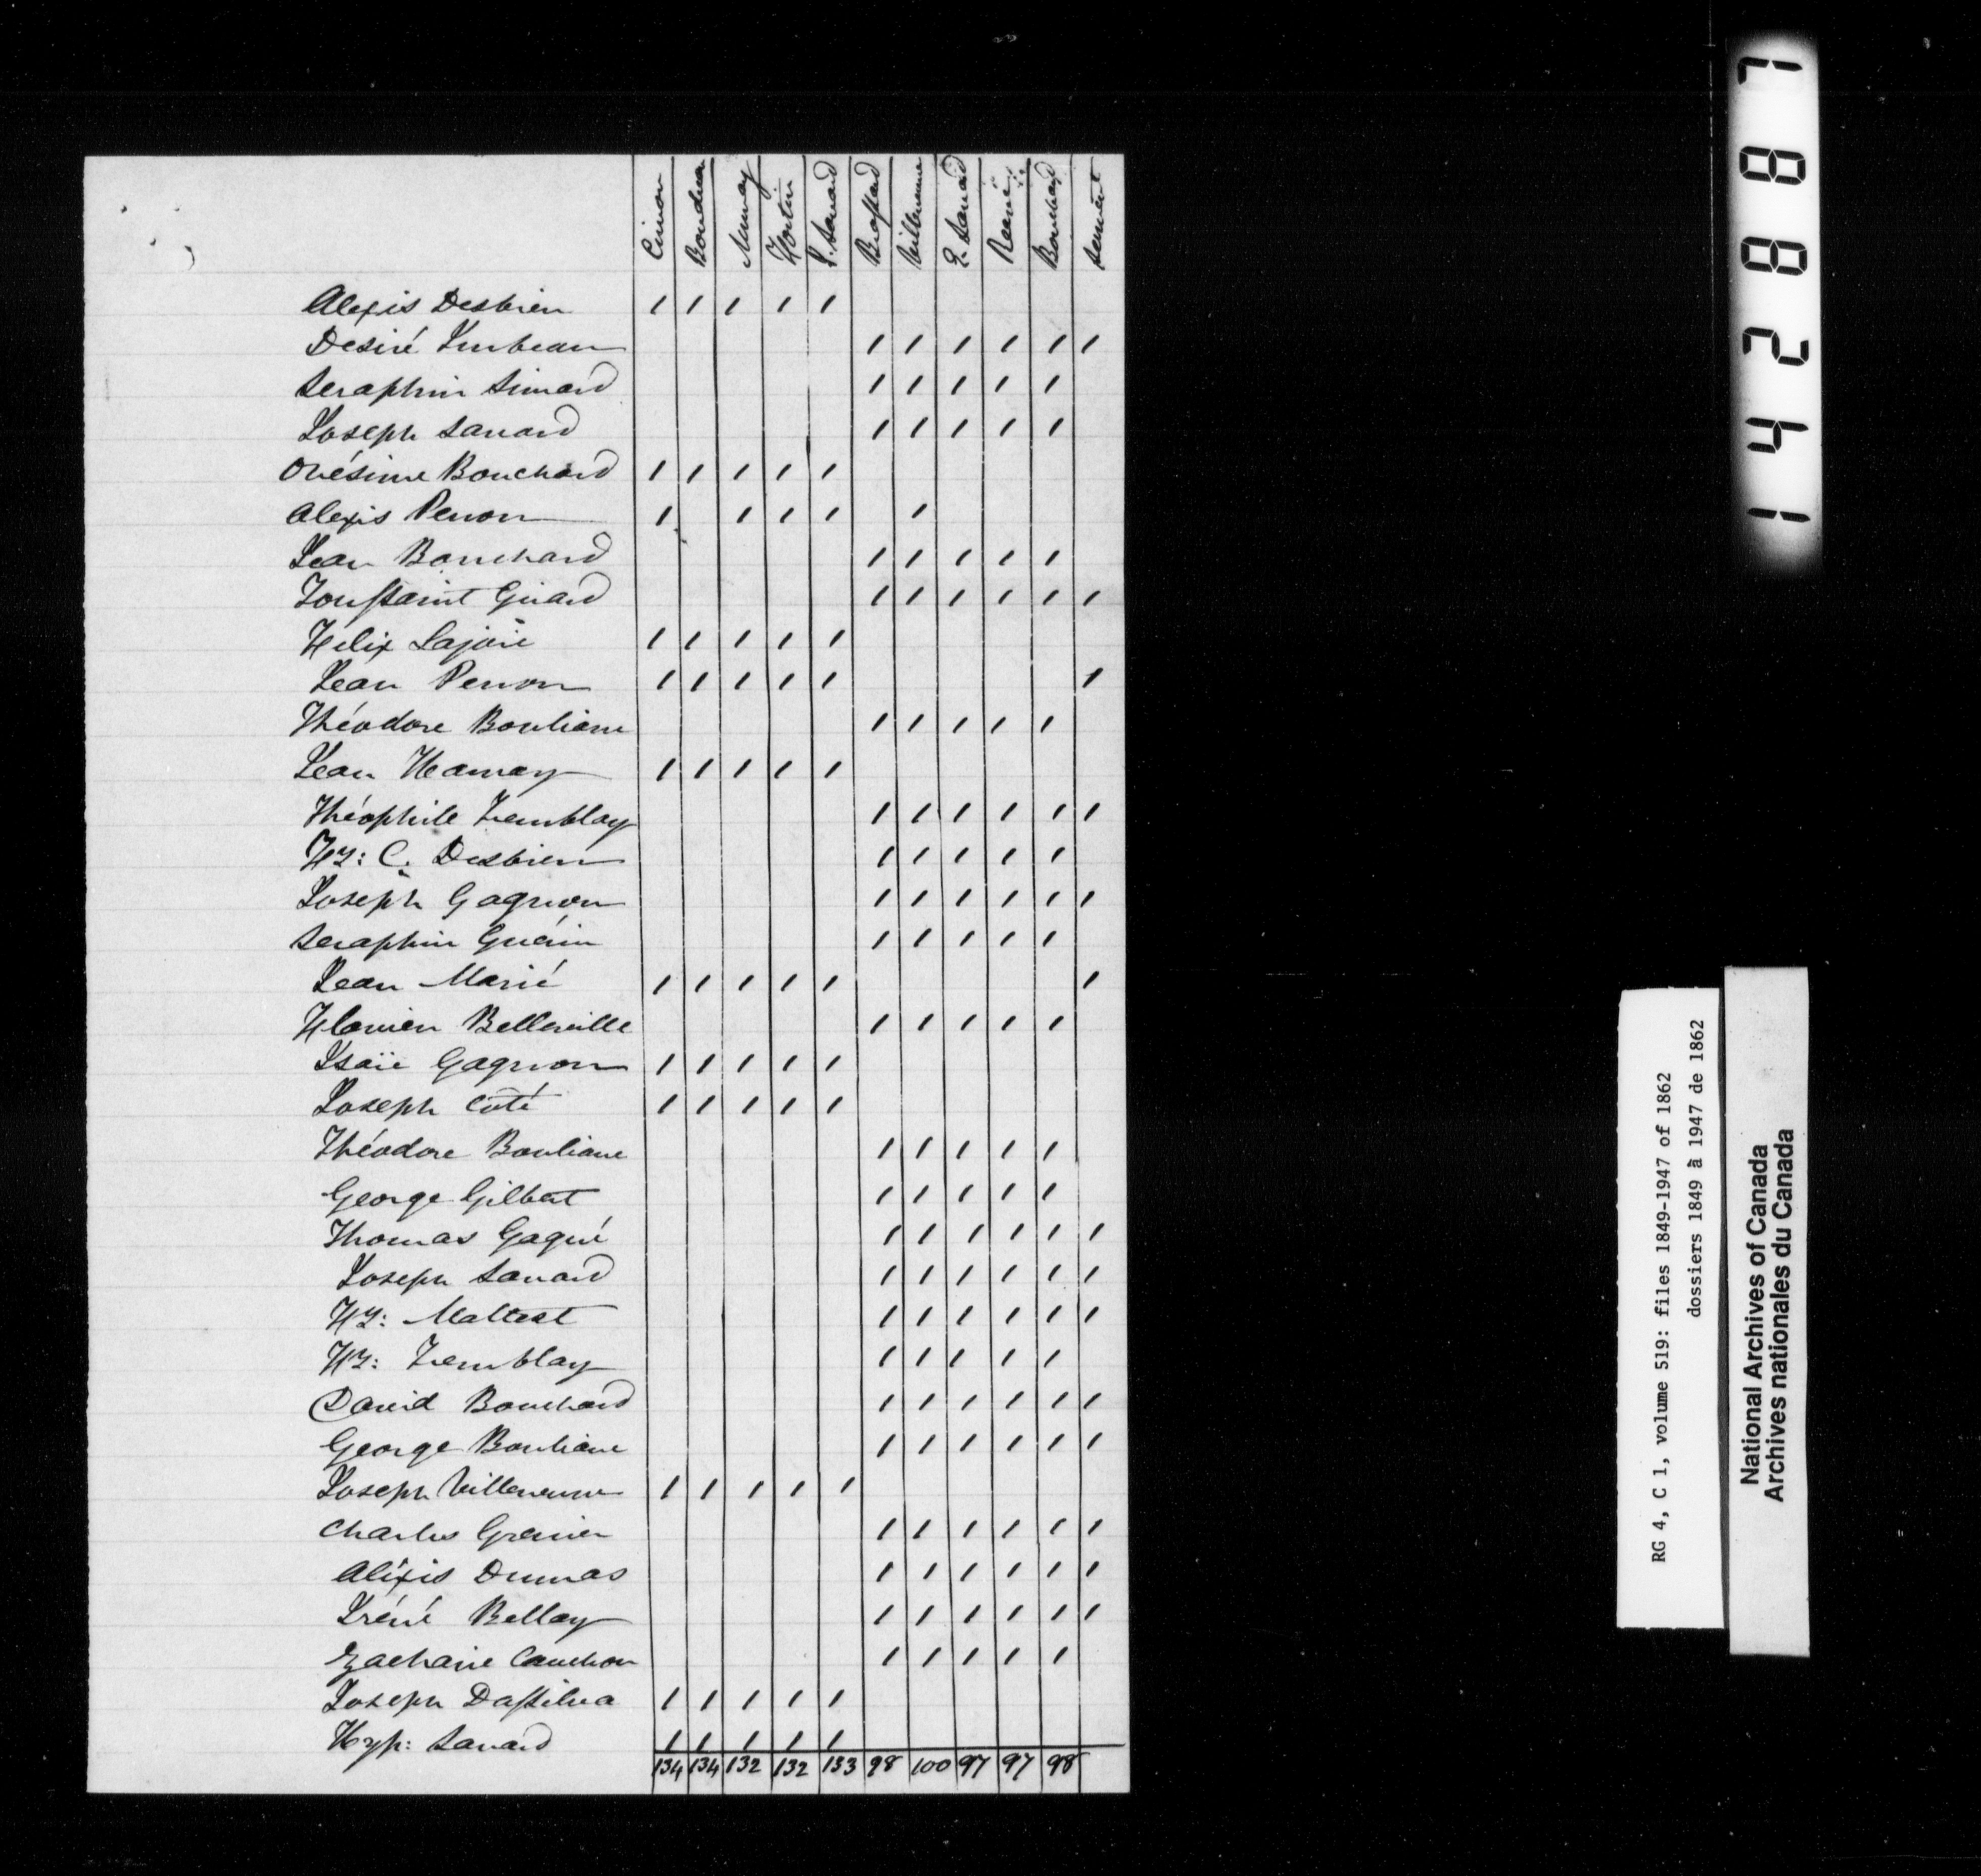 Cimon Boudreau Murray Fortin P. Savard Brassard Villeneuve E. Savard Bouchard serment
Alexis Desbien 1 1 1 1 1
Desiré Imbeau 1 1 1 1 1 1
Seraphin Simard 1 1 1 1 1
Joseph Savard 1 1 1 1 1
Onésime Bouchard 1 1 1 1 1
Alexis Perron 1 1 1 1 1
Jean Bouchard 1 1 1 1 1
Toussaint Girard 1 1 1 1 1 1
Félix Lajoie 1 1 1 1 1
Jean Perron 1 1 1 1 1 1
Théodore Bouliane 1 1 1 1 1
Jean Hamay 1 1 1 1 1
Théophile Tremblay 1 1 1 1 1 1
Fs: C. Desbien 1 1 1 1 1
Joseph Gagnon 1 1 1 1 1 1
Seraphin Guérin 1 1 1 1 1
Jean Marié 1 1 1 1 1 1
Flavien Belleville 1 1 1 1 1
Isaïe Gagnon 1 1 1 1 1
Joseph Coté 1 1 1 1 1
Théodore Bouliane 1 1 1 1 1
George Gilbert 1 1 1 1 1
Thomas Gagné 1 1 1 1 1 1
Joseph Savard 1 1 1 1 1 1
Fs: Maltest 1 1 1 1 1 1
Fs: Tremblay 1 1 1 1 1
David Bouchard 1 1 1 1 1 1
George Bouliane 1 1 1 1 1 1
Joseph Villeneuve 1 1 1 1 1
Charles Grenier 1 1 1 1 1 1
Aléxis Dumas 1 1 1 1 1 1
Iréné Bellay 1 1 1 1 1 1
Zacharie Cauchon 1 1 1 1 1
Joseph Dassilva 1 1 1 1 1
Hyp: Savard 1 1 1 1 1
134 134 132 132 133 98 100 97 97 98
142887
RG 4, C 1, volume 519: files 1849-1947 of 1862
dossiers 1849 à 1947 de 1862
National Archives of Canada
Archives nationales du Canada